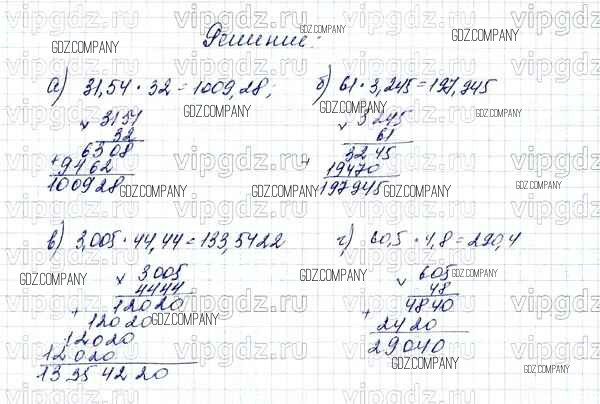 Решение:
а) 31,54 · 32 = 1009,28;
б) 61 · 3,245 = 197,945
× 3154
32
6308
+ 9462
100928
× 3245
61
3245
+ 19470
197945
в) 3,005 · 44,44 = 133,5422
г) 60,5 · 4,8 = 290,4
× 3005
4444
12020
+ 12020
12020
12020
13354220
× 605
48
4840
+ 2420
29040
GDZ.COMPANY
vipgdz.ru